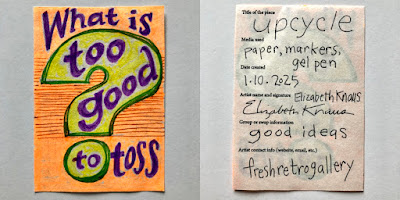 What is
too
good
to toss
Title of the place
upcycle
Media used
paper, markers,
gel pen
Date created
1.10.2025
Artist name and signature Elizabeth Knaus
Elizabeth Knaus
Group or swap information
good ideas
Artist contact info (website, email, etc.)
freshretrogallery